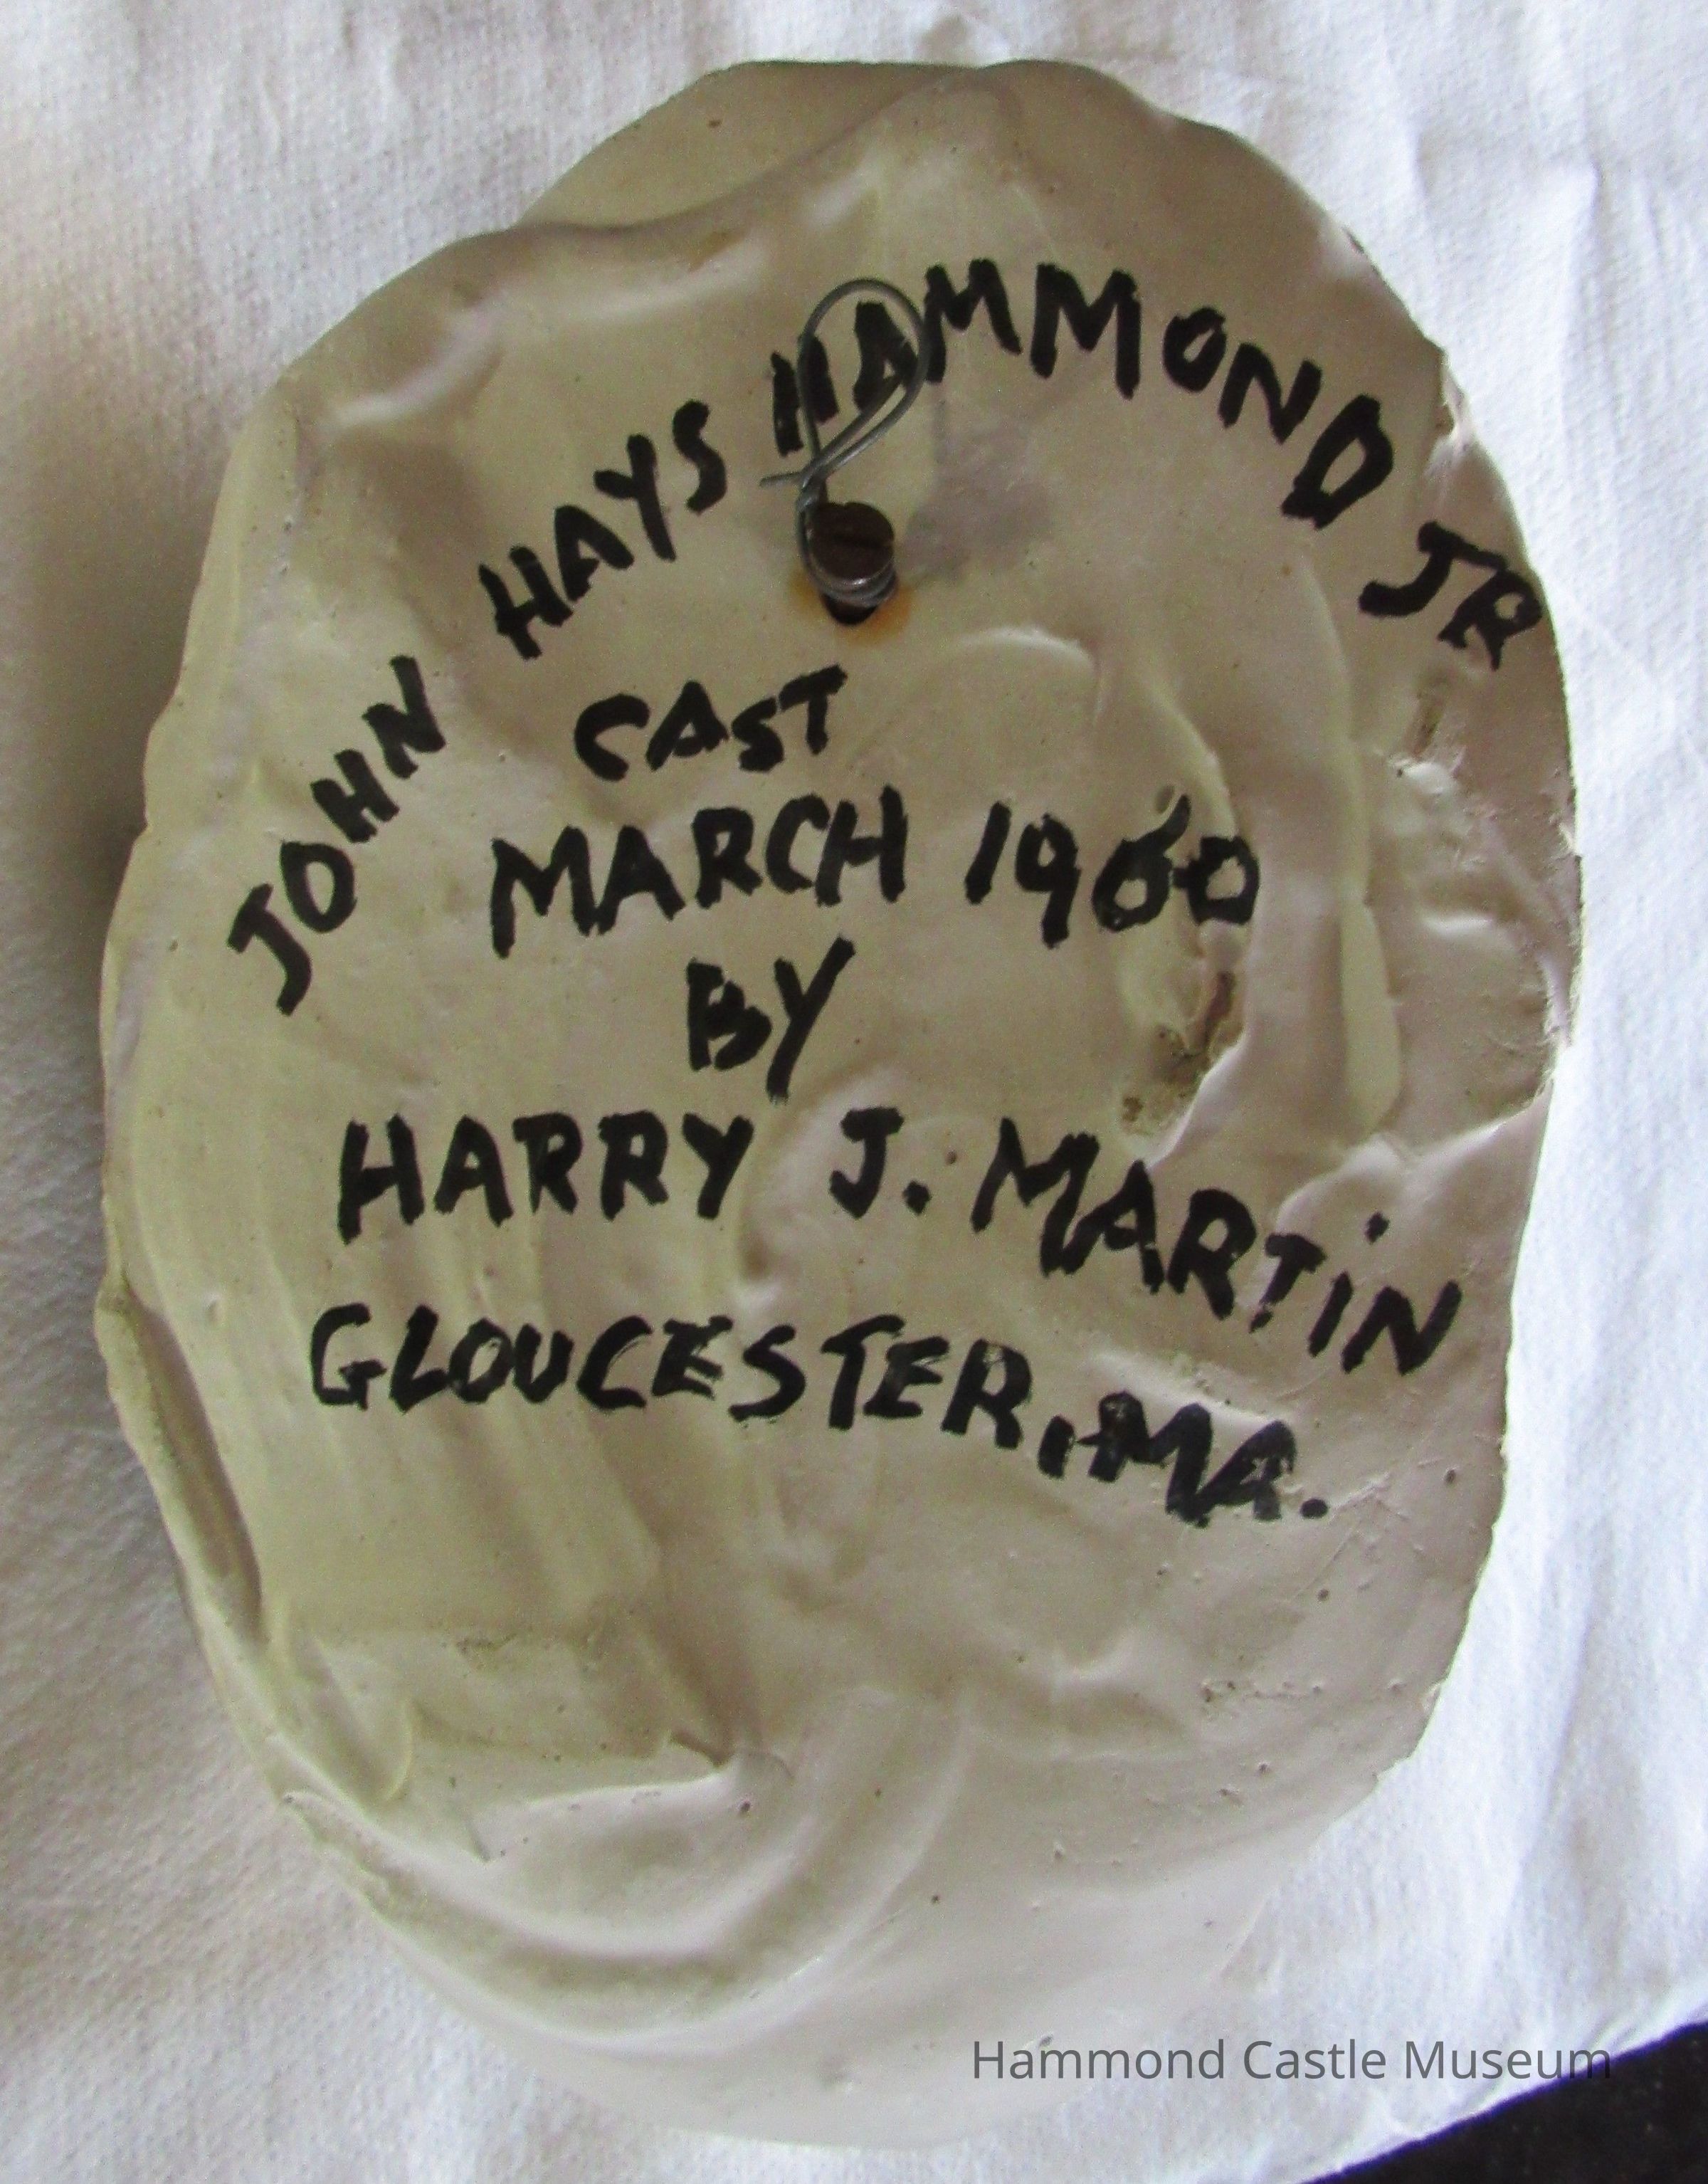 JOHN HAYS HAMMOND JR
CAST
MARCH 1960
BY
HARRY J. MARTiN
GLOUCESTER, MA.
Hammond Castle Museum